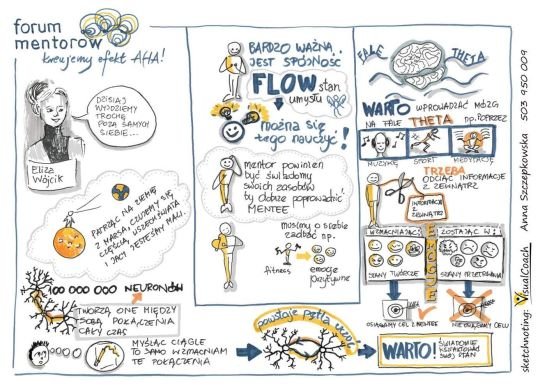 forum
mentorów
kreujemy efekt AHA!
DZISIAJ
WYJDZIEMY
TROCHĘ
POZA SAMYCH
SIEBIE...
Eliza
Wójcik
PATRZĄC NA ZIEMIĘ
Z MARSA CZUJEMY SIĘ
CZĘŚCIĄ WSZECHŚWIATA
I JACY JESTEŚMY MALI.
100 000 000 NEURONÓW
TWORZĄ ONE MIĘDZY
SOBĄ POŁĄCZENIA
CAŁY CZAS
MYŚLĄC CIĄGLE
TO SAMO WZMACNIAM
TE POŁĄCZENIA
BARDZO WAŻNA..
JEST SPÓJNOŚĆ
FLOW stan
umysłu
można się
tego nauczyć!
mentor powinien
być świadomy
swoich zasobów
by dobrze poprowadzić
MENTEE
musimy o siebie
zadbać np.
fitness
emocje
pozytywne
powstaje pętla
FALE THETA
WARTO WPROWADZAĆ MÓZG
NA FALE THETA np. POPRZEZ
MUZYKĘ
SPORT
MEDYTACJĘ
TRZEBA
ODCIĄĆ INFORMACJE
Z ZEWNĄTRZ
INFORMACJA
Z ZEWNĄTRZ
EMOCJE
WZMACNIAJĄCE
ZOSTAJĄC W:
STANY TWÓRCZE
STANY PRZETRWANIA
OSIĄGAMY CEL Z MENTEE
NIE OSIĄGAMY CELU
WARTO! ŚWIADOMIE
KSZTAŁTOWAĆ
SWÓJ STAN
sketchnoting: VisualCoach Anna Szczepkowska 503 950 009